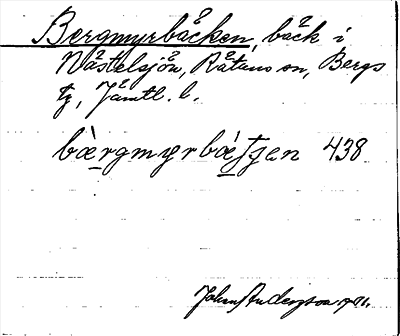 Bergmyrbäcken, bäck i
Nästelsjön, Rätans sn, Bergs
tg, Jämtl. l.
bærgmyrbæʃʃen 438
John Andersson 1926.